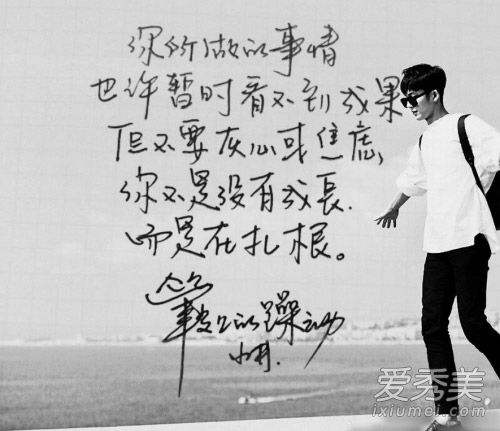 你所做的事情
也许暂时看不到成果
但不要灰心或焦虑,
你不是没有成長.
而是在扎根。
的躁动
爱秀美
ixiumei.com